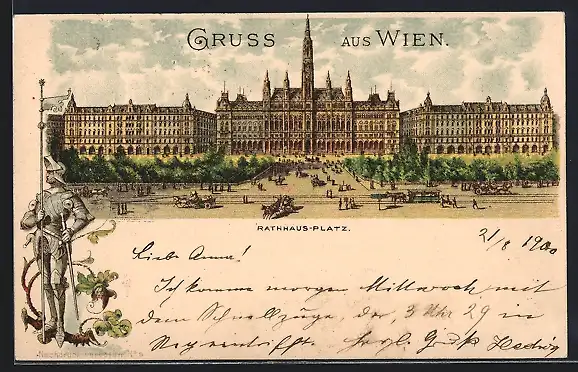 GRUSS AUS WIEN.
RATHHAUS-PLATZ.
21/8 1900
Liebe Anna!
Ich komme morgen Mittwoch mit
dem Schnellzuge, der 3 Uhr 29 in
eintrifft. Herzl. Gruß Hedwig